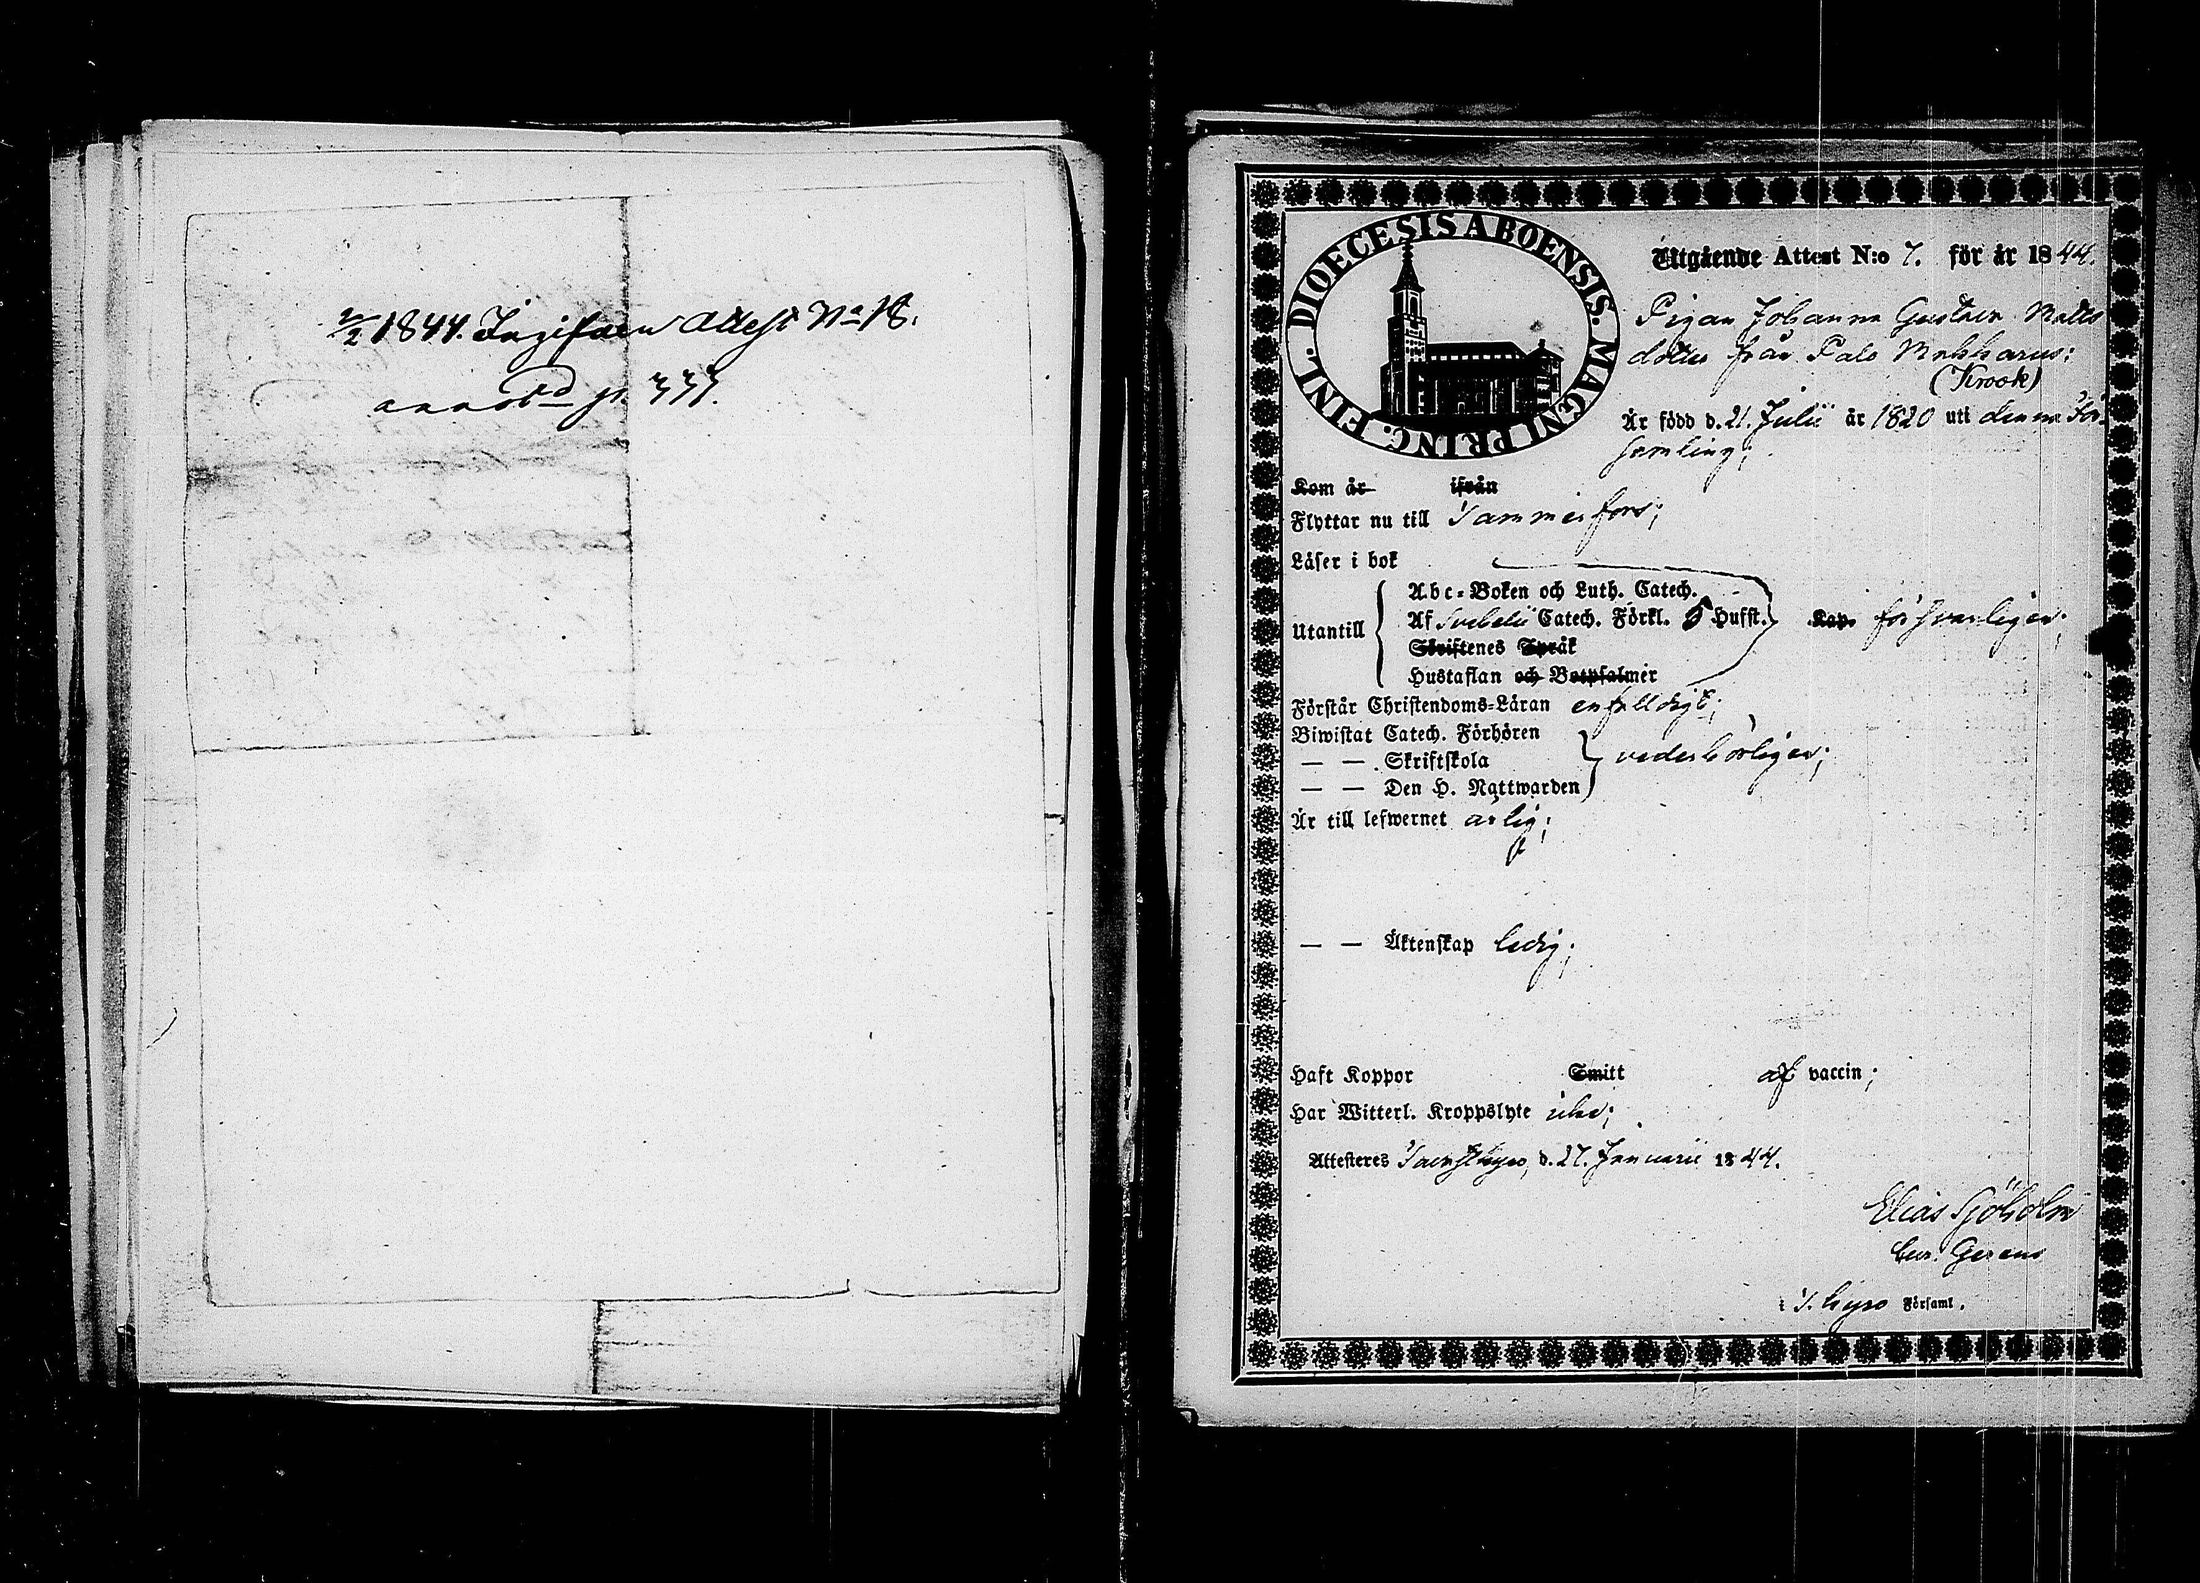 2/2 1844. Ingifven Attest No 18.
annot:d p. 337.
DIOECESIS ABOENSIS. MAGNI PRINC. FINL.
Utgående Attest N:o 7. för år 1844.
Pigan Johanna Gustava Matts
dotter från Palo Mahharus:
(Krook)
Är född d. 21. Julii år 1820 uti denna För-
samling;
Kom år ifrån
Flyttar nu till Tammerfors;
Läser i bok
Utantill
Abc-Boken och Luth. Catech.
Af Svebelii Catech. Förkl. 5 Hufst. Kap. försvarligen;
Skriftenes Språk
Hustaflan och Botpsalmer
Förstår Christendoms-Läran enfaldigt;
Biwistat Catech. Förhören
— — Skriftskola vederbörligen;
— — Den H. Nattwarden
Är till lefwernet ärlig;
— — Äktenskap ledig;
Haft Koppor Smitt af vaccin;
Har Witterl. Kroppslyte icke;
Attesteres Tavastkyro, d. 27. Januarii 1844.
Elias Sjöholm
Cur. Gerens
i T. kyro Församl.